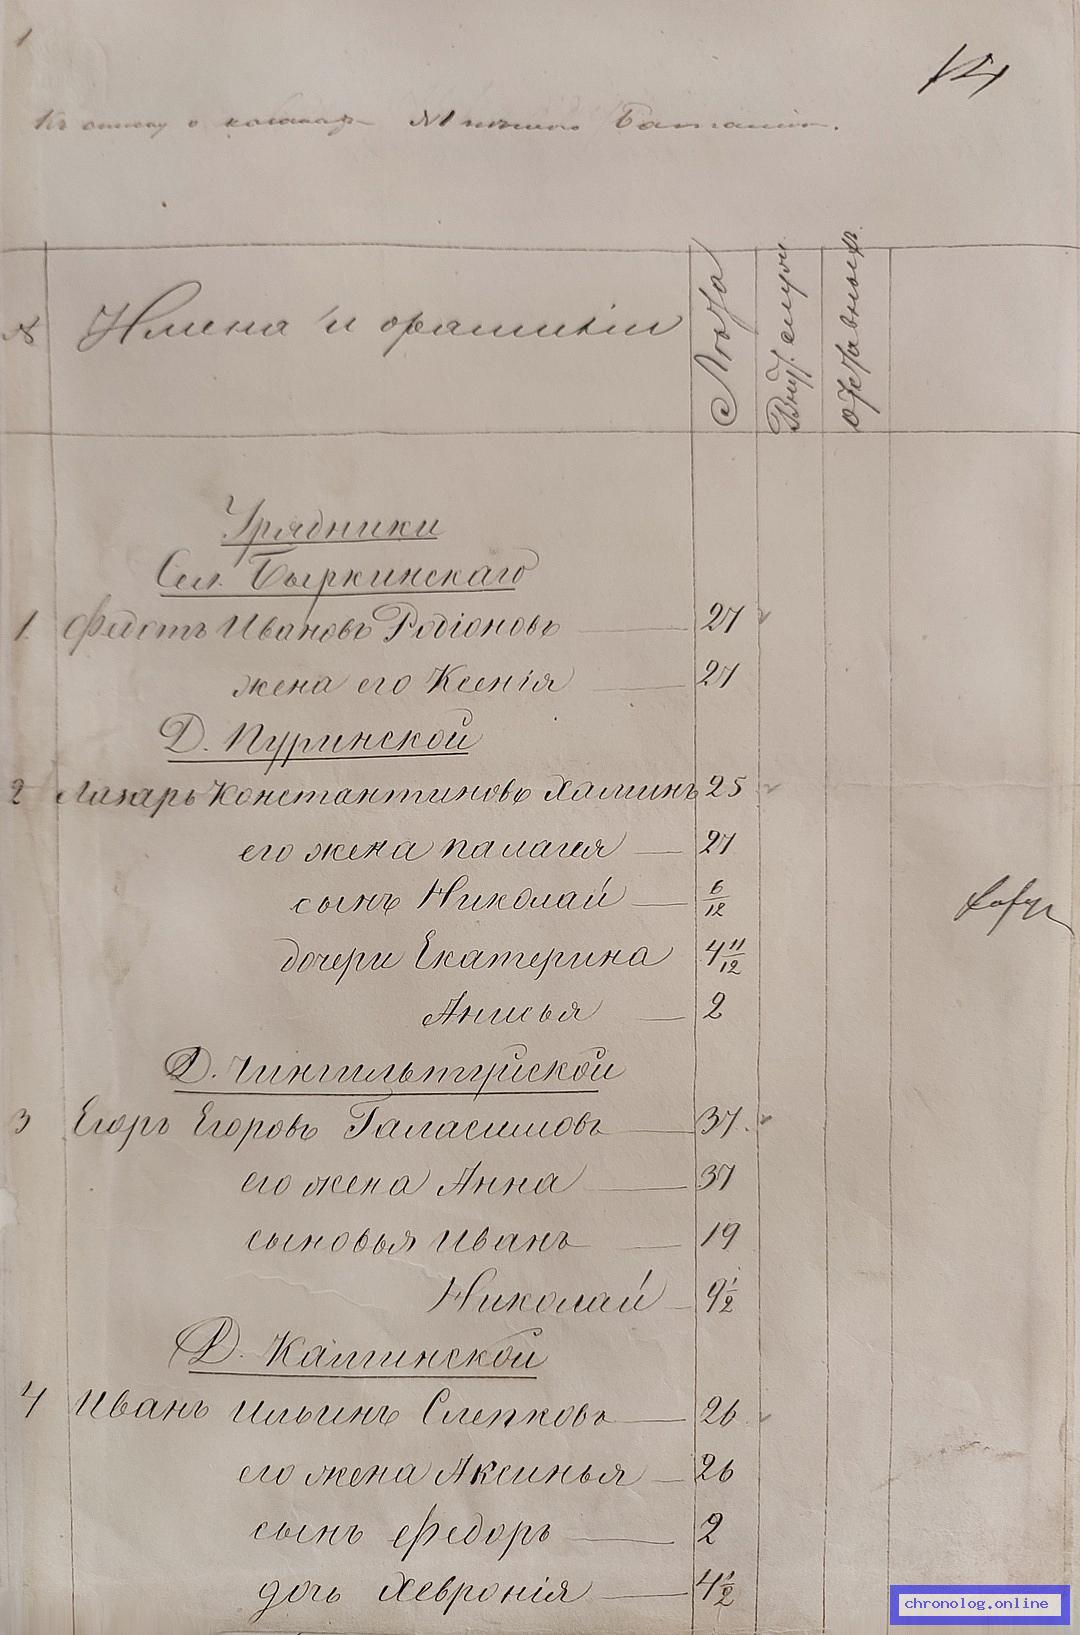 1
14
Къ списку о казакахъ №1 пешаго Баталіона.
№ Имена и фамиліи Лѣта Внут. служ. отставныхъ
Урядники
Сел. Быркинскаго
1 Федотъ Ивановъ Родіоновъ 27
жена его Ксенія 27
Д. Пуринской
2 Лазарь Константиновъ Халинъ 25
его жена Палагея 27
сынъ Николай 6/12
дочери Екатерина 4 11/12
Анисья 2
Д. Чингильтуйской
3 Егоръ Егоровъ Галасимовъ 37.
его жена Анна 37
сыновья Иванъ 19
Николай 9 1/2
Д. Катинской
4 Иванъ Ильинъ Слепковъ 26
его жена Аксинья 26
сынъ Федоръ 2
дочь Хевронія 4 1/2
chronolog.online